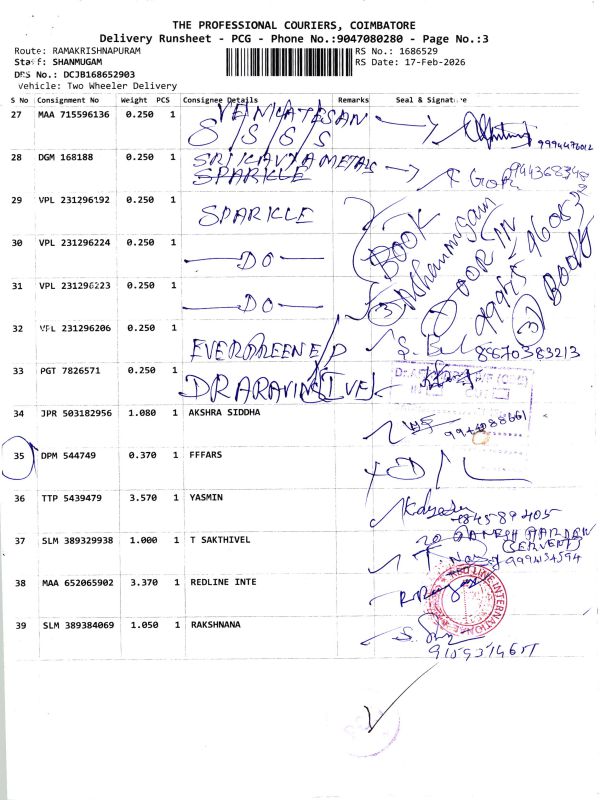 THE PROFESSIONAL COURIERS, COIMBATORE
Delivery Runsheet - PCG - Phone No.:9047080280 - Page No.:3
Route: RAMAKRISHNAPURAM
Staff: SHANMUGAM
DRS No.: DCJB168652903
Vehicle: Two Wheeler Delivery
RS No.: 1686529
RS Date: 17-Feb-2026
S No Consignment No Weight PCS Consignee Details Remarks Seal & Signature
27 MAA 715596136 0.250 1 VENKATESAN
28 DGM 168188 0.250 1 SRI KAVYA METALS
SPARKLE
29 VPL 231296192 0.250 1 SPARKLE
BOOK
Shanmugam
30 VPL 231296224 0.250 1 DO
DOOR IN
31 VPL 231296223 0.250 1 DO
3 BOOK
32 VPL 231296206 0.250 1 EVERGREEN E/D
8870383213
33 PGT 7826571 0.250 1 DR ARAVIND IVF
34 JPR 503182956 1.080 1 AKSHRA SIDDHA
35 DPM 544749 0.370 1 FFFARS
36 TTP 5439479 3.570 1 YASMIN
37 SLM 389329938 1.000 1 T SAKTHIVEL
20 GANESH GARDEN
(SERVENT)
38 MAA 652065902 3.370 1 REDLINE INTE
RED LINE INTERNATIONAL
39 SLM 389384069 1.050 1 RAKSHNANA